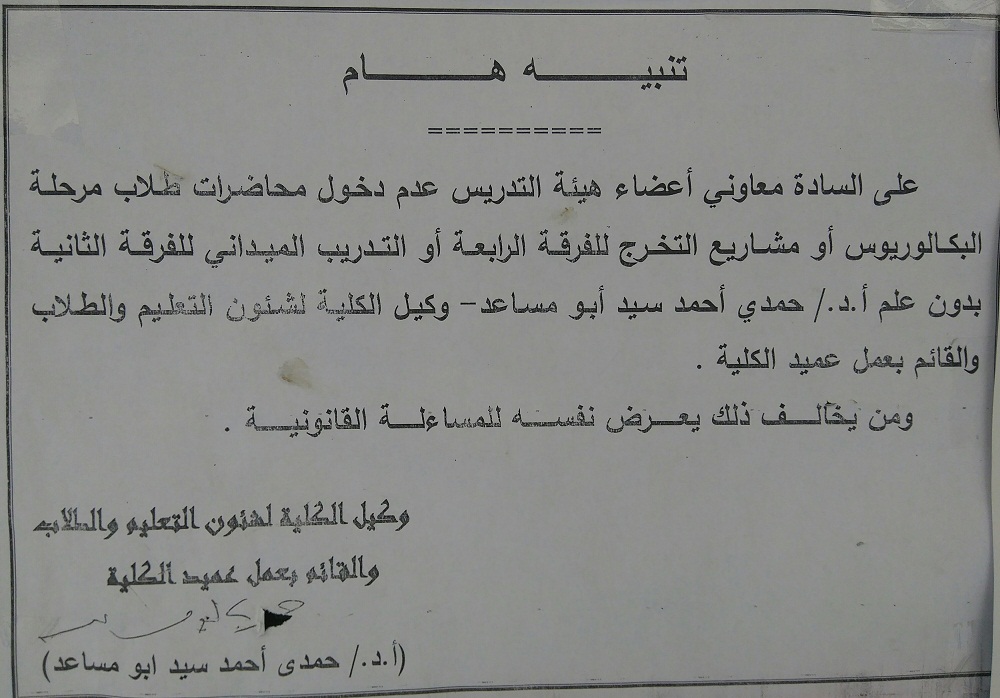 تنبيه هام
==========
على السادة معاوني أعضاء هيئة التدريس عدم دخول محاضرات طلاب مرحلة
البكالوريوس أو مشاريع التخرج للفرقة الرابعة أو التدريب الميداني للفرقة الثانية
بدون علم أ.د./ حمدي أحمد سيد أبو مساعد- وكيل الكلية لشئون التعليم والطلاب
والقائم بعمل عميد الكلية .
ومن يخالف ذلك يعرض نفسه للمساءلة القانونية .
وكيل الكلية لشئون التعليم والطلاب
والقائم بعمل عميد الكلية
(أ.د./ حمدى أحمد سيد ابو مساعد)